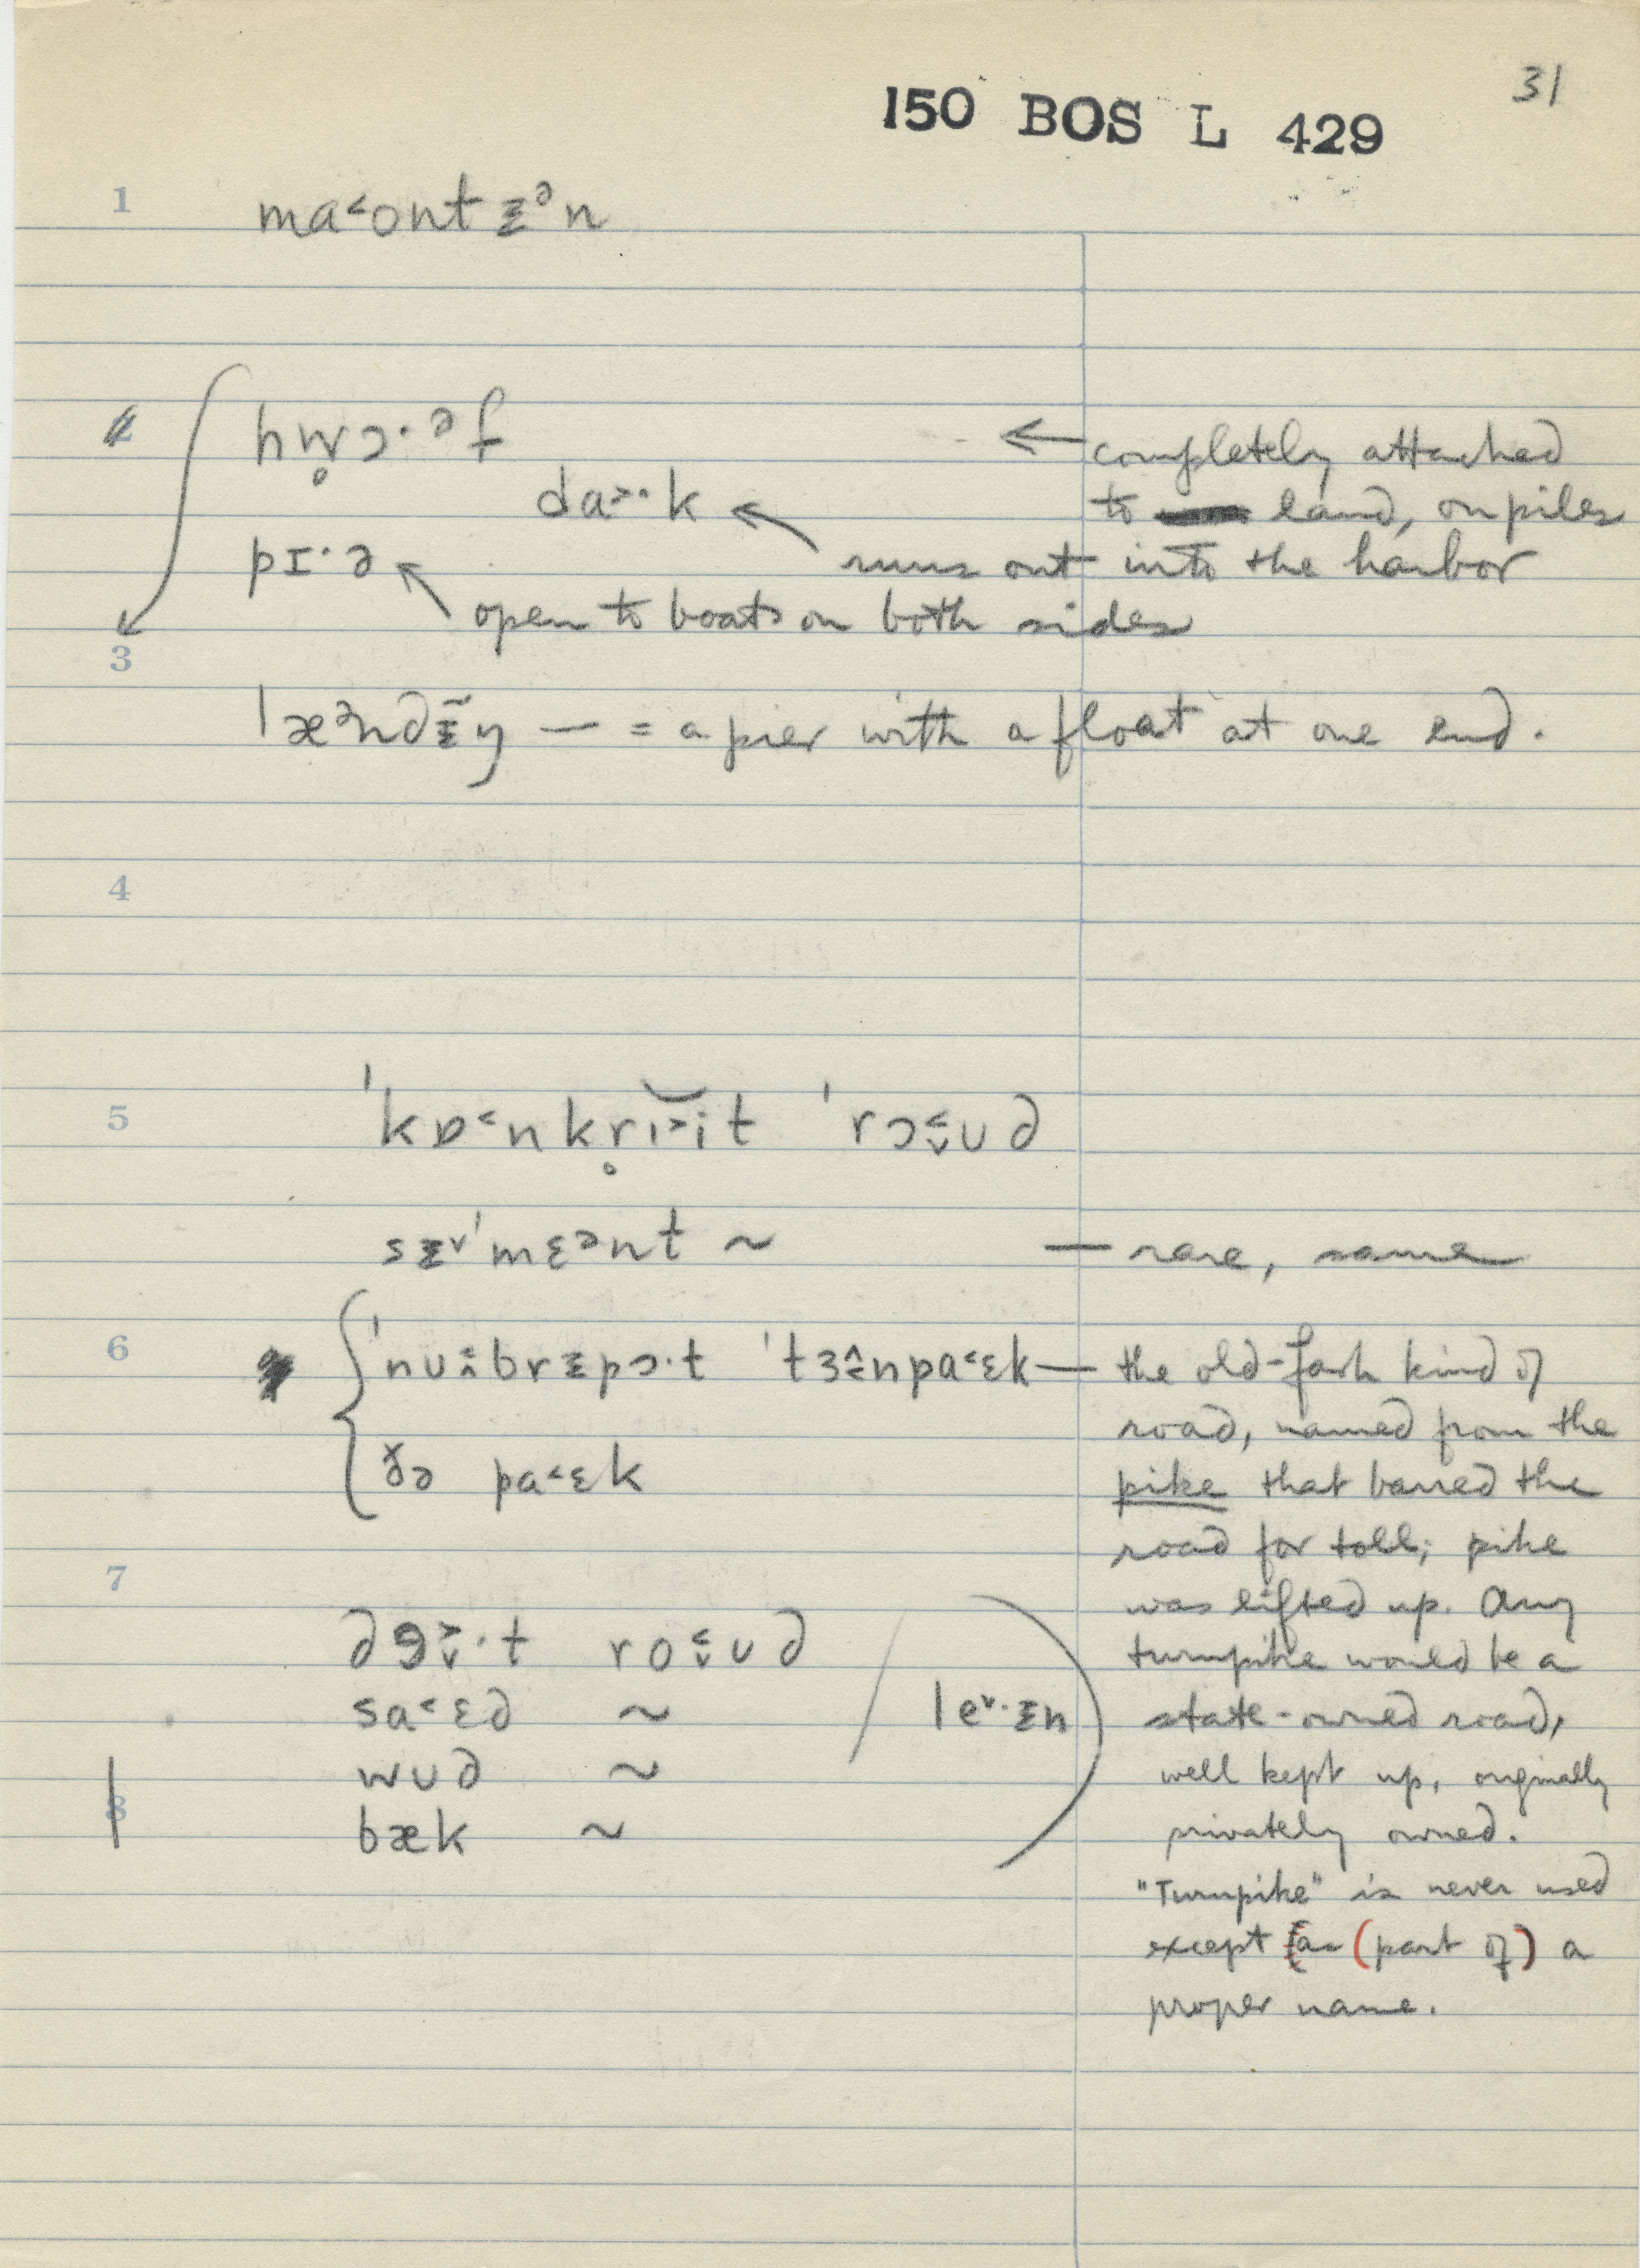 31
150 BOS L 429
1 ma˂ontᵻᵊn
2 hw̥ɔ·ᵊf ← completely attached
da˃·k ← to land, on piles
pɪ·ə runs out into the harbor
open to boats on both sides
3
læᵊndᵻ̃ŋ — = a pier with a float at one end.
4
5 ˈkɒ˂nkr̥ɪ˃it ˈrɔ˂ʊd
sᵻ˅ˈmɛᵊnt ~ — rare, same
6 ˈnubrᵻpɔ·t ˈtɜnpa˂ɛk — the old-fash kind of
road, named from the
ðə pa˂ɛk pike that barred the
road for toll; pike
7 was lifted up. Any
də˃·t ro˂ʊd turnpike would be a
sa˂ɛd ~ le˅·ᵻn state-owned road,
wʊd ~ well kept up, originally
8 bæk ~ privately owned.
"Turnpike" is never used
except as (part of) a
proper name.